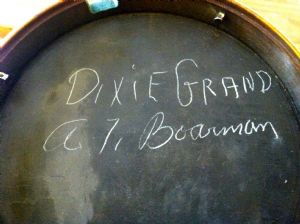 DIXIE GRAND
A. T. Boarman